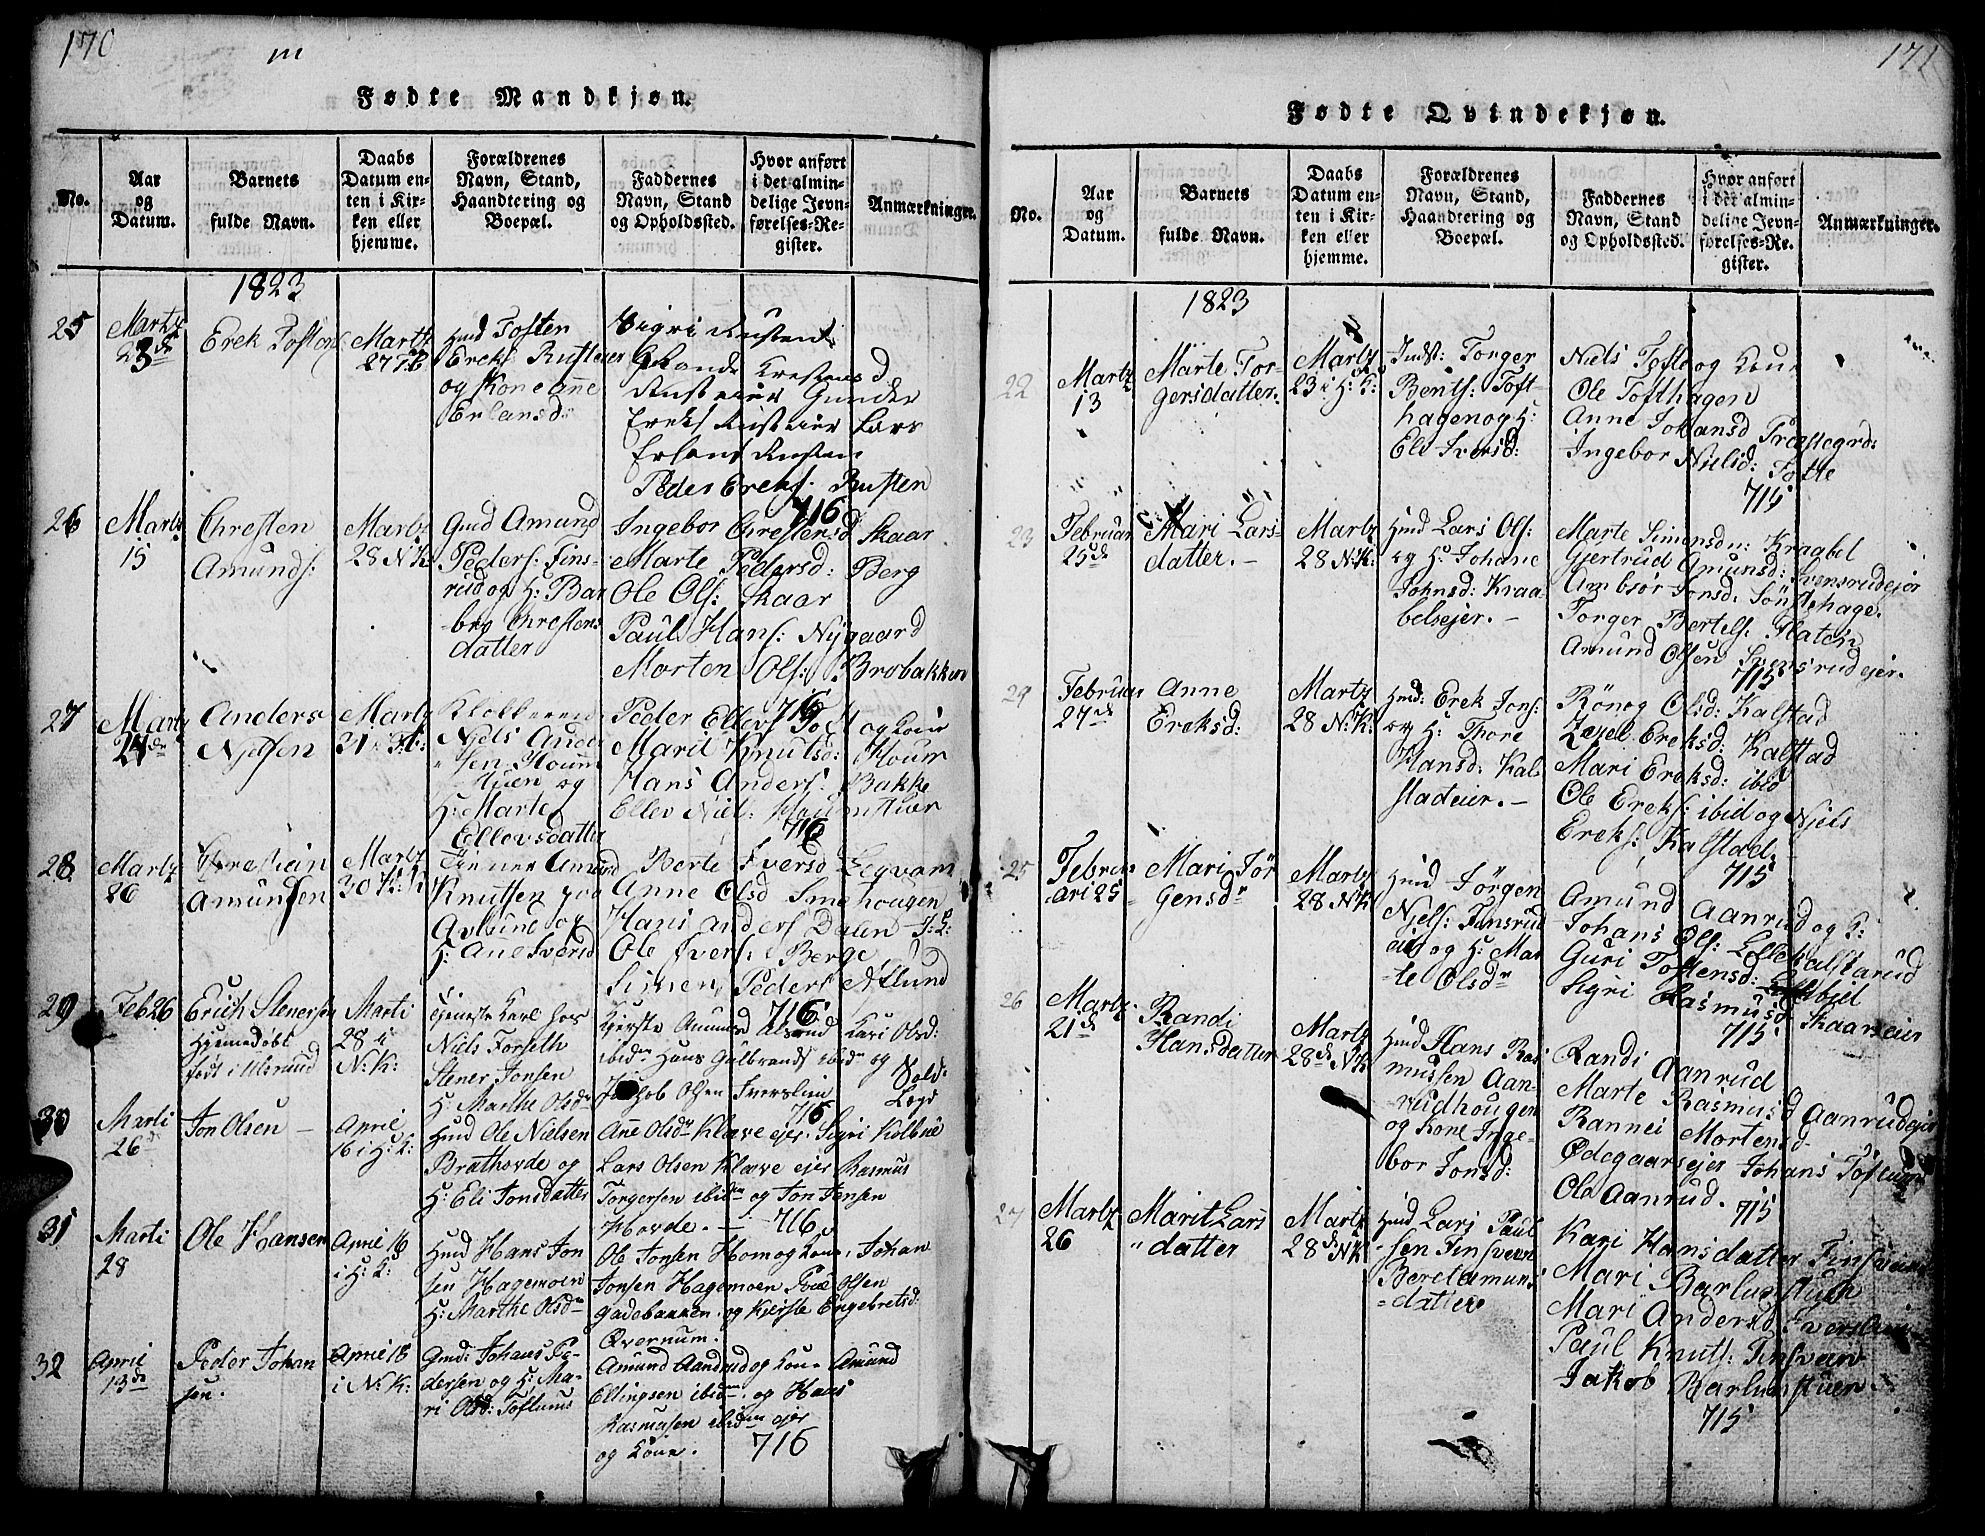 170
m
Fødte Mandkjøn.
No.
Aar
og
Datum.
Barnets
fulde Navn.
Daabs
Datum en-
ten i Kir-
ken eller
hjemme.
Forældrenes
Navn, Stand,
Haandtering og
Boepæl.
Faddernes
Navn, Stand
og Opholdssted.
Hvor anført
i det almin-
delige Jevn-
førelses-Re-
gister.
Anmærkninger.
1823
25
Martz
23de
Erek Tosten
Martz
27 F:K
Hmd Tosten
Ereks: Rusteier
og Kone Anne
Erlansd:
Sigri Rusten
Krestens
Rusteier Gunder
Ereks Rusteier Lars
Erlans Rusten
Peder Ereks: Rusten
716
26
Martz
15
Chresten
Amunds:
Martz
28 N:K
Gmd Amund
Peders: Fins-
rud og H: Bar
-bro Chrestens
datter
Ingebor Chrestensd Skaar
Marte Pedersd: Berg
Ole Ols: Skaar
Paul Hans: Nygaard
Morten Ols: Brobakken
716
27
Martz
24de
Anders
Nielsen
Martz
31
Klokkeren
Niels Ander
sen Houm
stuen og
H: Marte
Ellevsdatter
Peder Ellevs og Kone
Marit Knutsd: Houm
Hans Anders: Bakke
Ellev Niel: Houmstuen
716
28
Martz
20
Chrestian
Amundsen
Martz
30
Tiener Amund
Knutsen paa
Avlund og
H: Ane Iversd
Berte Iversd Legvam
Anne Olsd Smehougen
Hans Anders Dalen
Ole Ivers: Berge
Simen Peders Avlund
716
29
Feb 26
Erich Stenersen
Hjemedøbt
født i Ulsrund
Marti
28 i
N:K:
Tjeneste Karl hos
Niels Forseth
Stener Jonsen
H: Marthe Olsdr
Kjerste Amunsd Ulsrud Kari Olsd:
ibidm Hans Gulbrands ibidm og
Jakob Olsen Iverslien
716
30
Marti
26
Jon Olsen
Aprie
16 i H: K:
Hmd Ole Nielsen
Brathovde og
H: Eli Jonsdatter
Ane Olsdr Klæve ejer. Sigri Kolbue
Lars Olsen Klæve ejer Rasmus
Torgersen ibidm og Jon Jensen
Hovde.
716
31
Marti
28
Ole Hansen
Aprie 16
i H: K:
Hmd Hans Jon
sen Hagemoen
H: Marthe Olsdr
Ole Jonsen Hom og Kone, Johan
Jonsen Hagemoen Poul Olsen
Gadebakken. og Kierste Engebretsd:
Qvernum.
32
Aprie
13de
Peder Johan
sen.
Aprie 18
i N: K:
Gmd: Johans Pe-
dersen og H: Ma-
ri Olsd: Toftums
Amund Aandrud og Kone Amund
Ellingsen ibidm. og Hans
Rasmusen ibidm ejer
og Kone.
716
171
Fødte Qvindekjøn.
No.
Aar
og
Datum.
Barnets
fulde Navn.
Daabs
Datum en-
ten i Kir-
ken eller
hjemme.
Forældrenes
Navn, Stand,
Haandtering og
Boepæl.
Faddernes
Navn, Stand
og Opholdssted.
Hvor anført
i det almin-
delige Jevn-
førelses-Re-
gister.
Anmærkninger.
1823
22
Martz
13
Marte Tor-
gersdatter.
Martz
23 i H: K:
Inds: Torger
Bents: Toft-
hagen og H:
Eli Iversd:
Niels Tofte og Kone
Ole Tofthagen
Anne Johansd Præstegrd:
Ingebor Nielsd: Tofte
715
23
Februar
25de
Mari Lars-
datter. -
Martz
28 N:K:
Hmd Lars Ols:
og H: Johane
Johnsd: Kraa-
belsejer. -
Marte Simensdr: Kraabel
Gjertrud Amunsd: Svensrudejer
Ambjør Jonsd: Sönstehage.
Torger Bertels: Flaten
Amund Olsen Svensrudejer.
715
24
Februar
27de
Anne
Ereksd:
Martz
28 N:K:
Hmd: Erek Jons:
og H: Thore
Hansd: Kal-
stadeier. -
Rönog Olsd: Kalstad
Zezel Ereksd: Kalstad
Mari Ereksd: ibid
Ole Ereks: ibid og Niels
Ereks: Kalstad.
715
25
Febru
ari 25
Mari Jör
gensdr
Martz
28 N:K
Hmd Jörgen
Niels: Finsrud
eie og H: Mar
-te Olsdr
Amund Aanrud og K:
Johans Ols: Lille Kalstarud
Guri Tostensd:
Sigri Rasmusd Skaarseier
715
26
Martz
21de
Randi
Hansdatter
Martz
28de N:K
Hmd Hans Ras
mussen Aan-
-rudhougen
og Kone Inge-
bor Jonsd:
Randi Aanrud
Marte Rasmusd Aanrudejer
Rannei Mortensd
Ødegaardsejer Johans Toftum
Ole Aanrud.
715
27
Martz
26
Marit Lars
datter
Martz
28de N:K
Hmd Lars Paul
sen Finsveen
Berte Amuns
=datter
Kari Hansdatter Finsveen
Mari Barlunstuen
Mari Andersd Iverslien
Paul Knuts: Finsveen
Jakob Barlunstuen
715